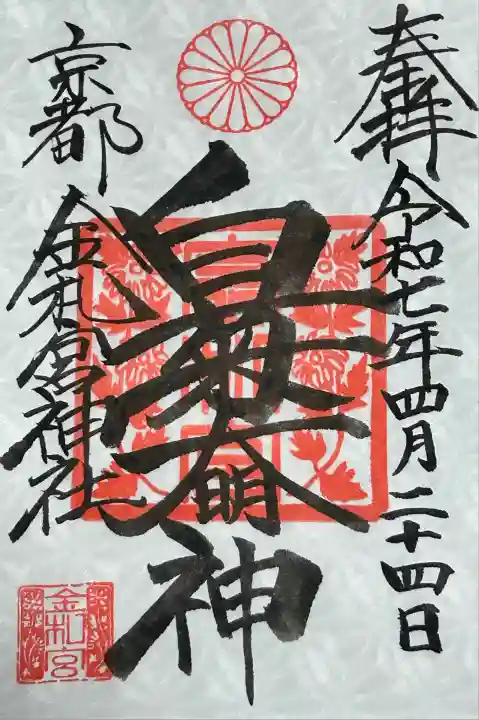 奉拝
令和七年四月二十四日
白菊大明神
京都
金札宮神社
金札宮